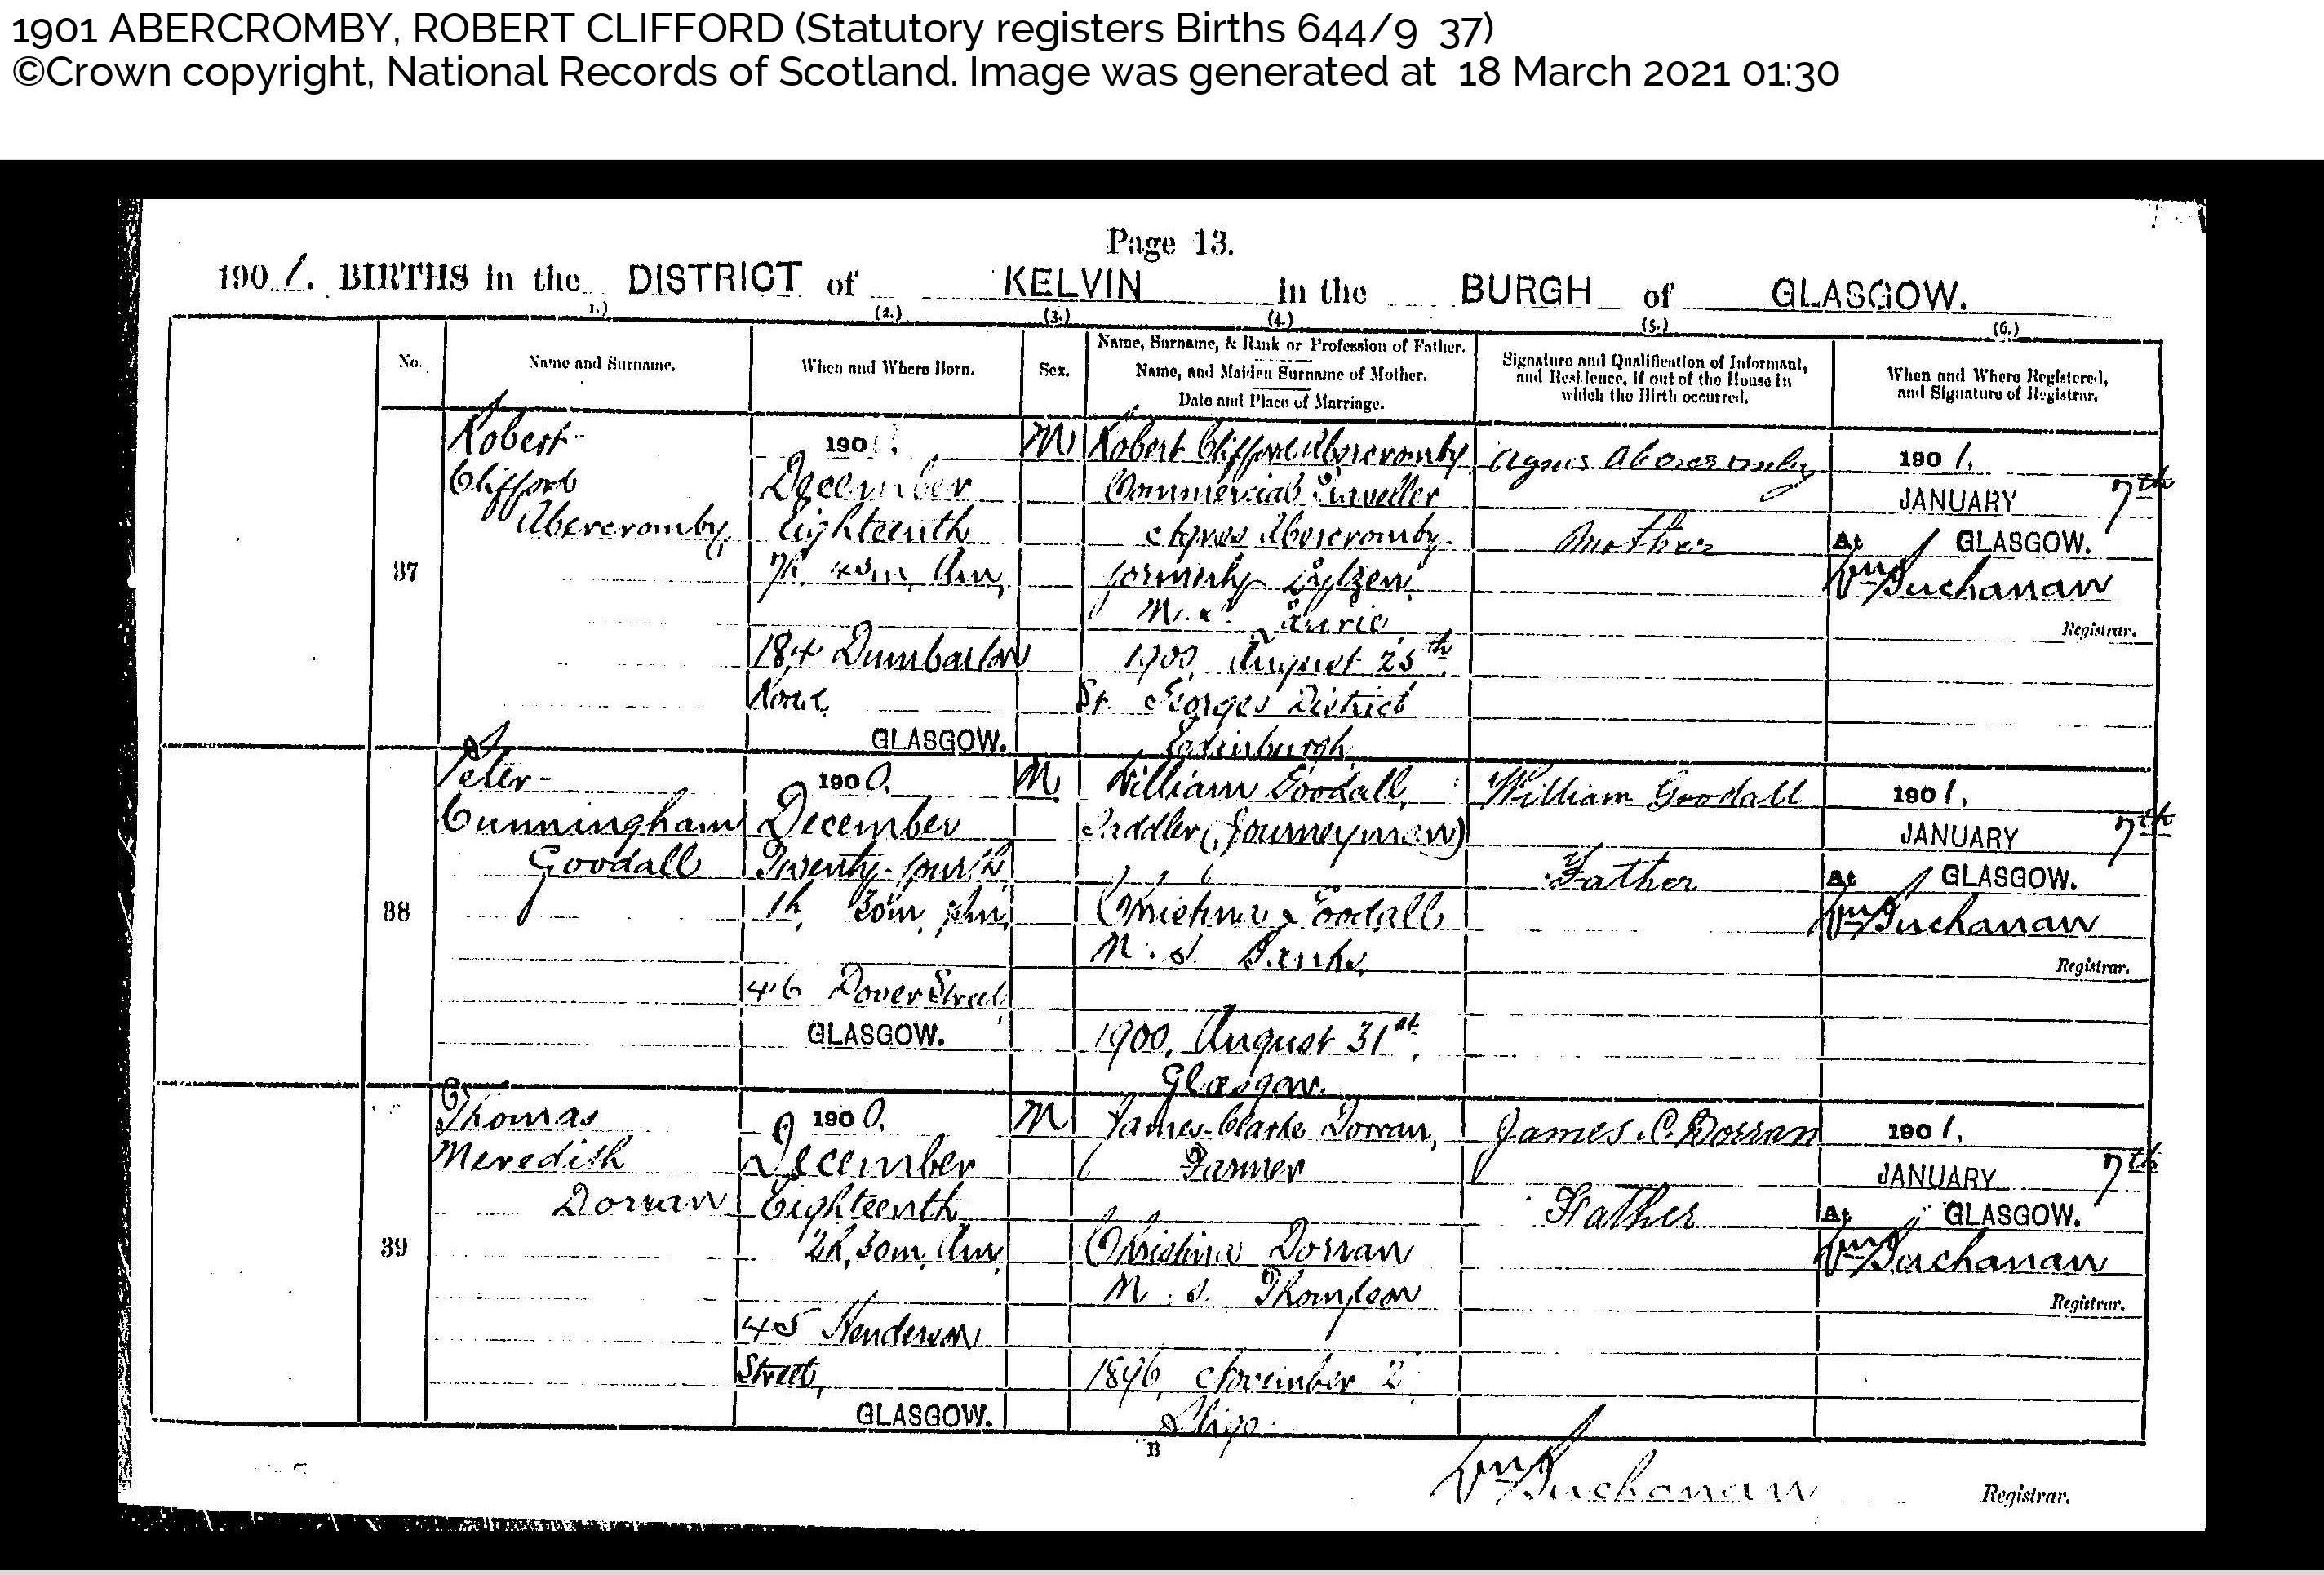 1901 ABERCROMBY, ROBERT CLIFFORD (Statutory registers Births 644/9 37)
©Crown copyright, National Records of Scotland. Image was generated at 18 March 2021 01:30
Page 13.
1901. BIRTHS in the DISTRICT of KELVIN in the BURGH of GLASGOW.
(1.) (2.) (3.) (4.) (5.) (6.)
No.
Name and Surname.
When and Where Born.
Sex.
Name, Surname, & Rank or Profession of Father.
Name, and Maiden Surname of Mother.
Date and Place of Marriage.
Signature and Qualification of Informant,
and Residence, if out of the House in
which the Birth occurred.
When and Where Registered,
and Signature of Registrar.
37
Robert
Clifford
Abercromby
190
December
Eighteenth
7h. 45m. Am,
184 Dumbarton
Road,
GLASGOW.
M
Robert Clifford Abercromby
Commercial Traveller
Agnes Abercromby
formerly
M.S. Laurie
1900, August 25th,
St. Georges District
Edinburgh
Agnes Abercromby
Mother
1901.
JANUARY 7th
At GLASGOW.
Wm Buchanan
Registrar.
38
Peter
Cunningham
Goodall
1900.
December
Twenty-fourth
1h. 30m. pm,
46 Dover Street,
GLASGOW.
M
William Goodall,
Saddler (Journeyman)
Christina Goodall
M.S. Banks,
1900, August 31st,
Glasgow.
William Goodall
Father
1901.
JANUARY 7th
At GLASGOW.
Wm Buchanan
Registrar.
39
Thomas
Meredith
Dorran
1900.
December
Eighteenth
2h. 30m. Am,
45 Henderson
Street,
GLASGOW.
M
James Clarke Dorran,
Farmer
Christina Dorran
M.S. Thompson
1896, November 2,
Sligo.
James C. Dorran
Father
1901.
JANUARY 7th
At GLASGOW.
Wm Buchanan
Registrar.
B
Wm Buchanan
Registrar.